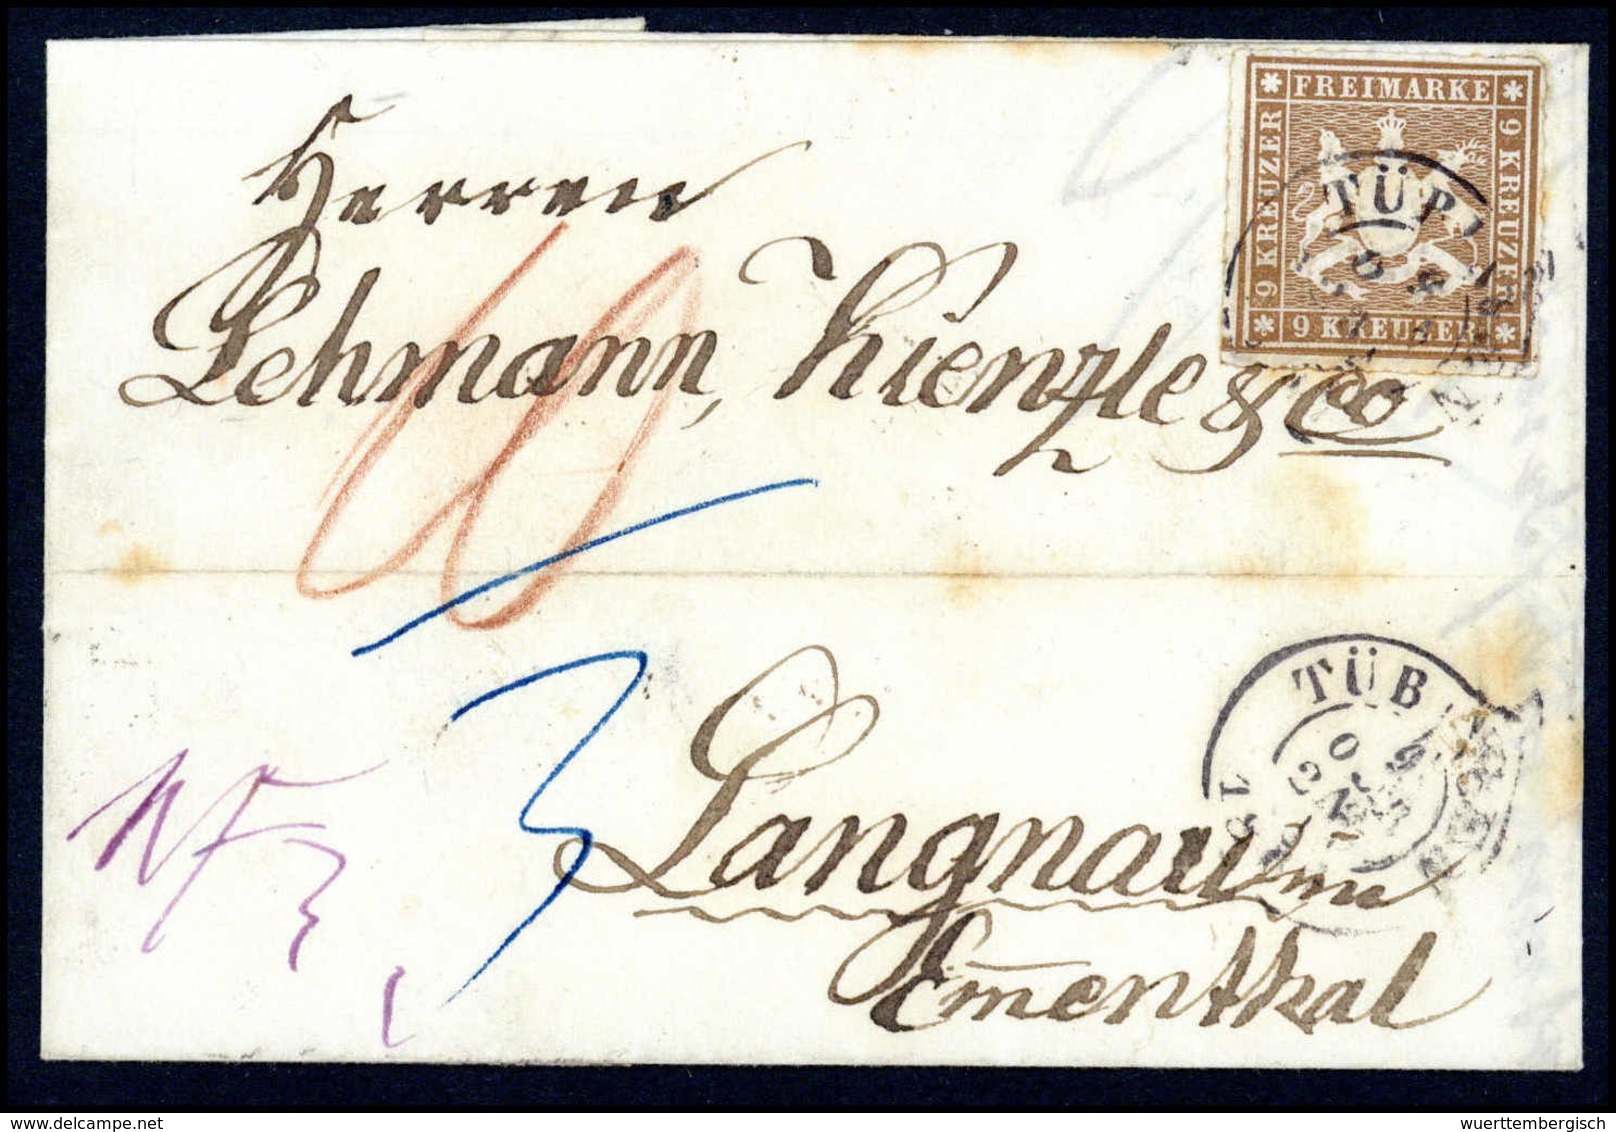 FREIMARKE
9 KREUZER
9 KREUZER
9 KREUZER
TÜB
Herren
Lehmann, Kienzle & Co
60
3
TÜB
Langnau im
Em̅enthal
3
delcampe.net
wuerttembergisch